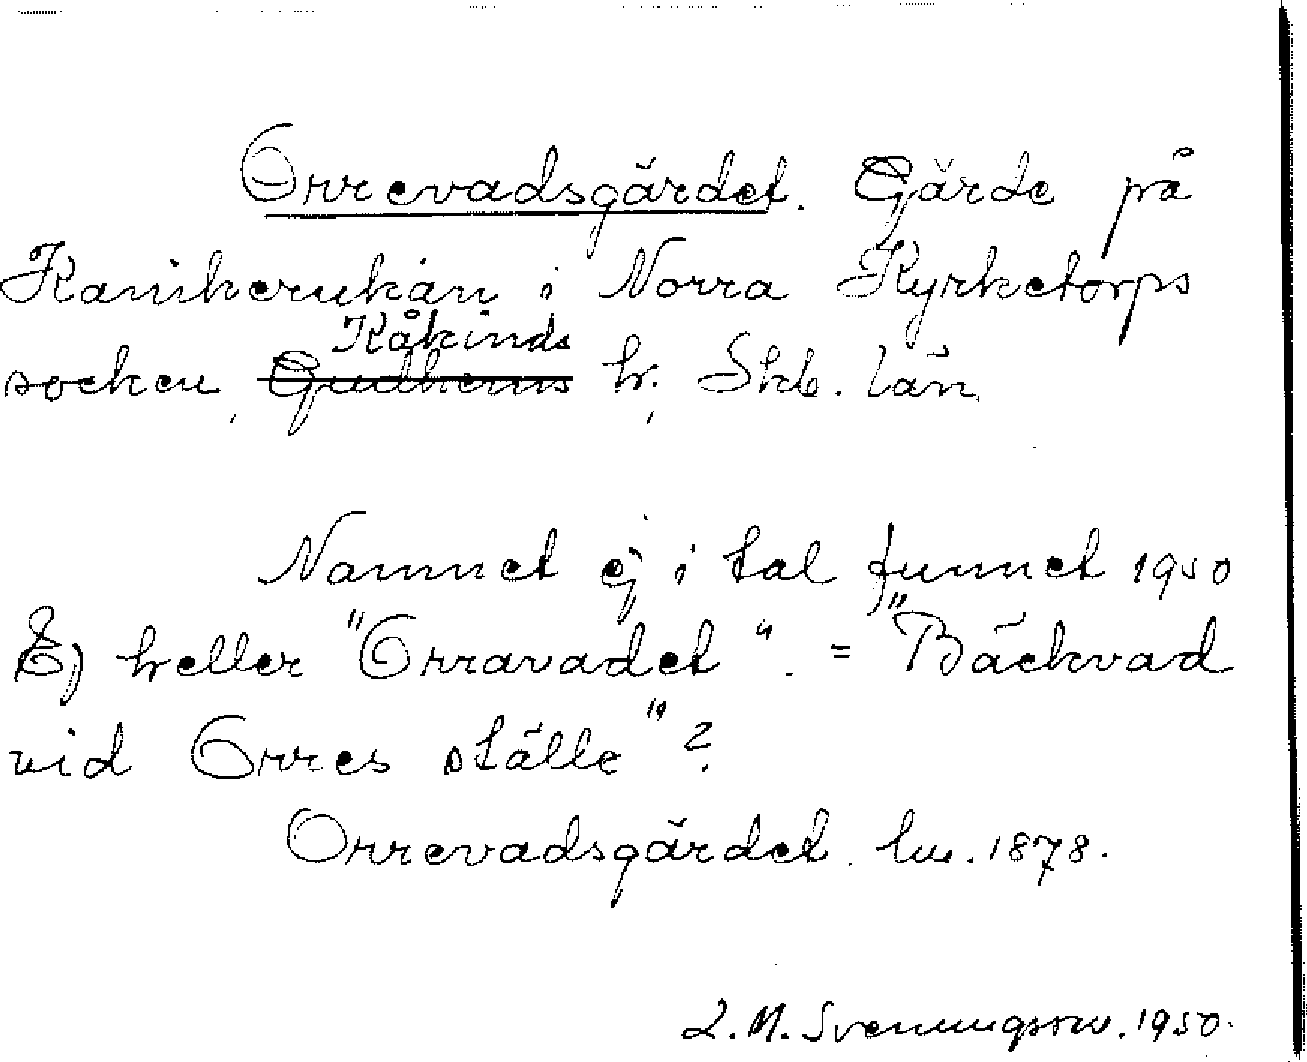 Orrevadsgärdet. Gärde på
Kanikerukån i Norra Kyrketorps
Kåkinds
socken, Gudhems hr, Skb. län.
Namnet ej i tal funnet 1950
Ej heller "Orravadet". = "Bäckvad
vid Orres ställe"?
Orrevadsgärdet. lm. 1878.
L. M. Svenungsson. 1950.